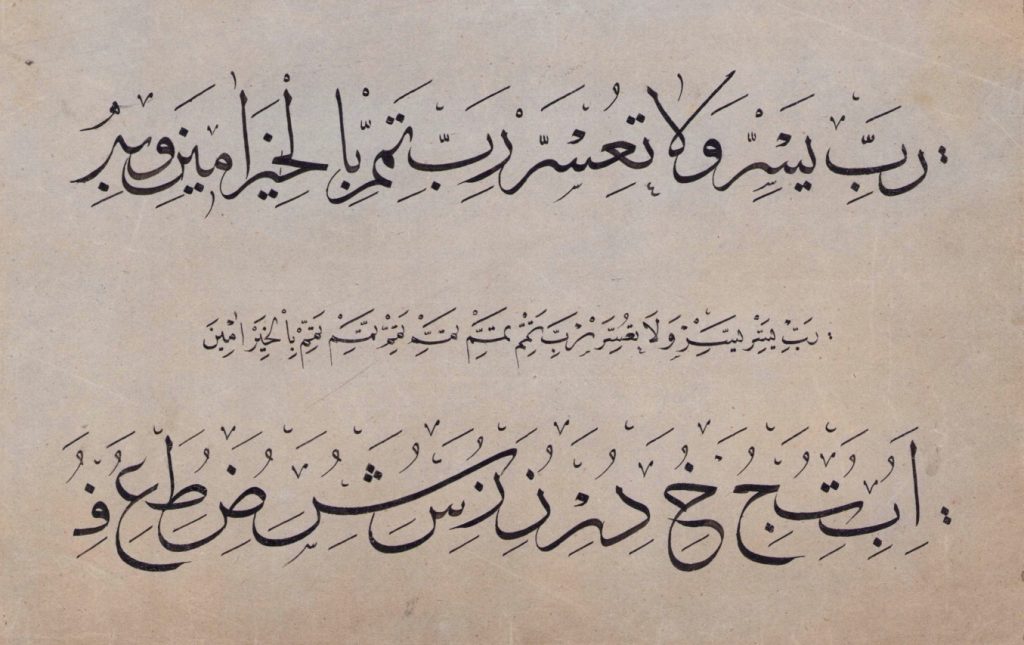 رَبِّ يَسِّرْ وَلَا تُعَسِّرْ رَبِّ تَمِّمْ بِالْخَيْرِ اٰمِينَ
رَبِّ يَسِّرْ يَسِّرْ وَلَا تُعَسِّرْ رَبِّ تَمِّمْ تَمِّمْ تَمِّمْ تَمِّمْ تَمِّمْ تَمِّمْ بِالْخَيْرِ اٰمِينَ
ا ب ت ج خ د ر ز ز س ش ض ط ع ف